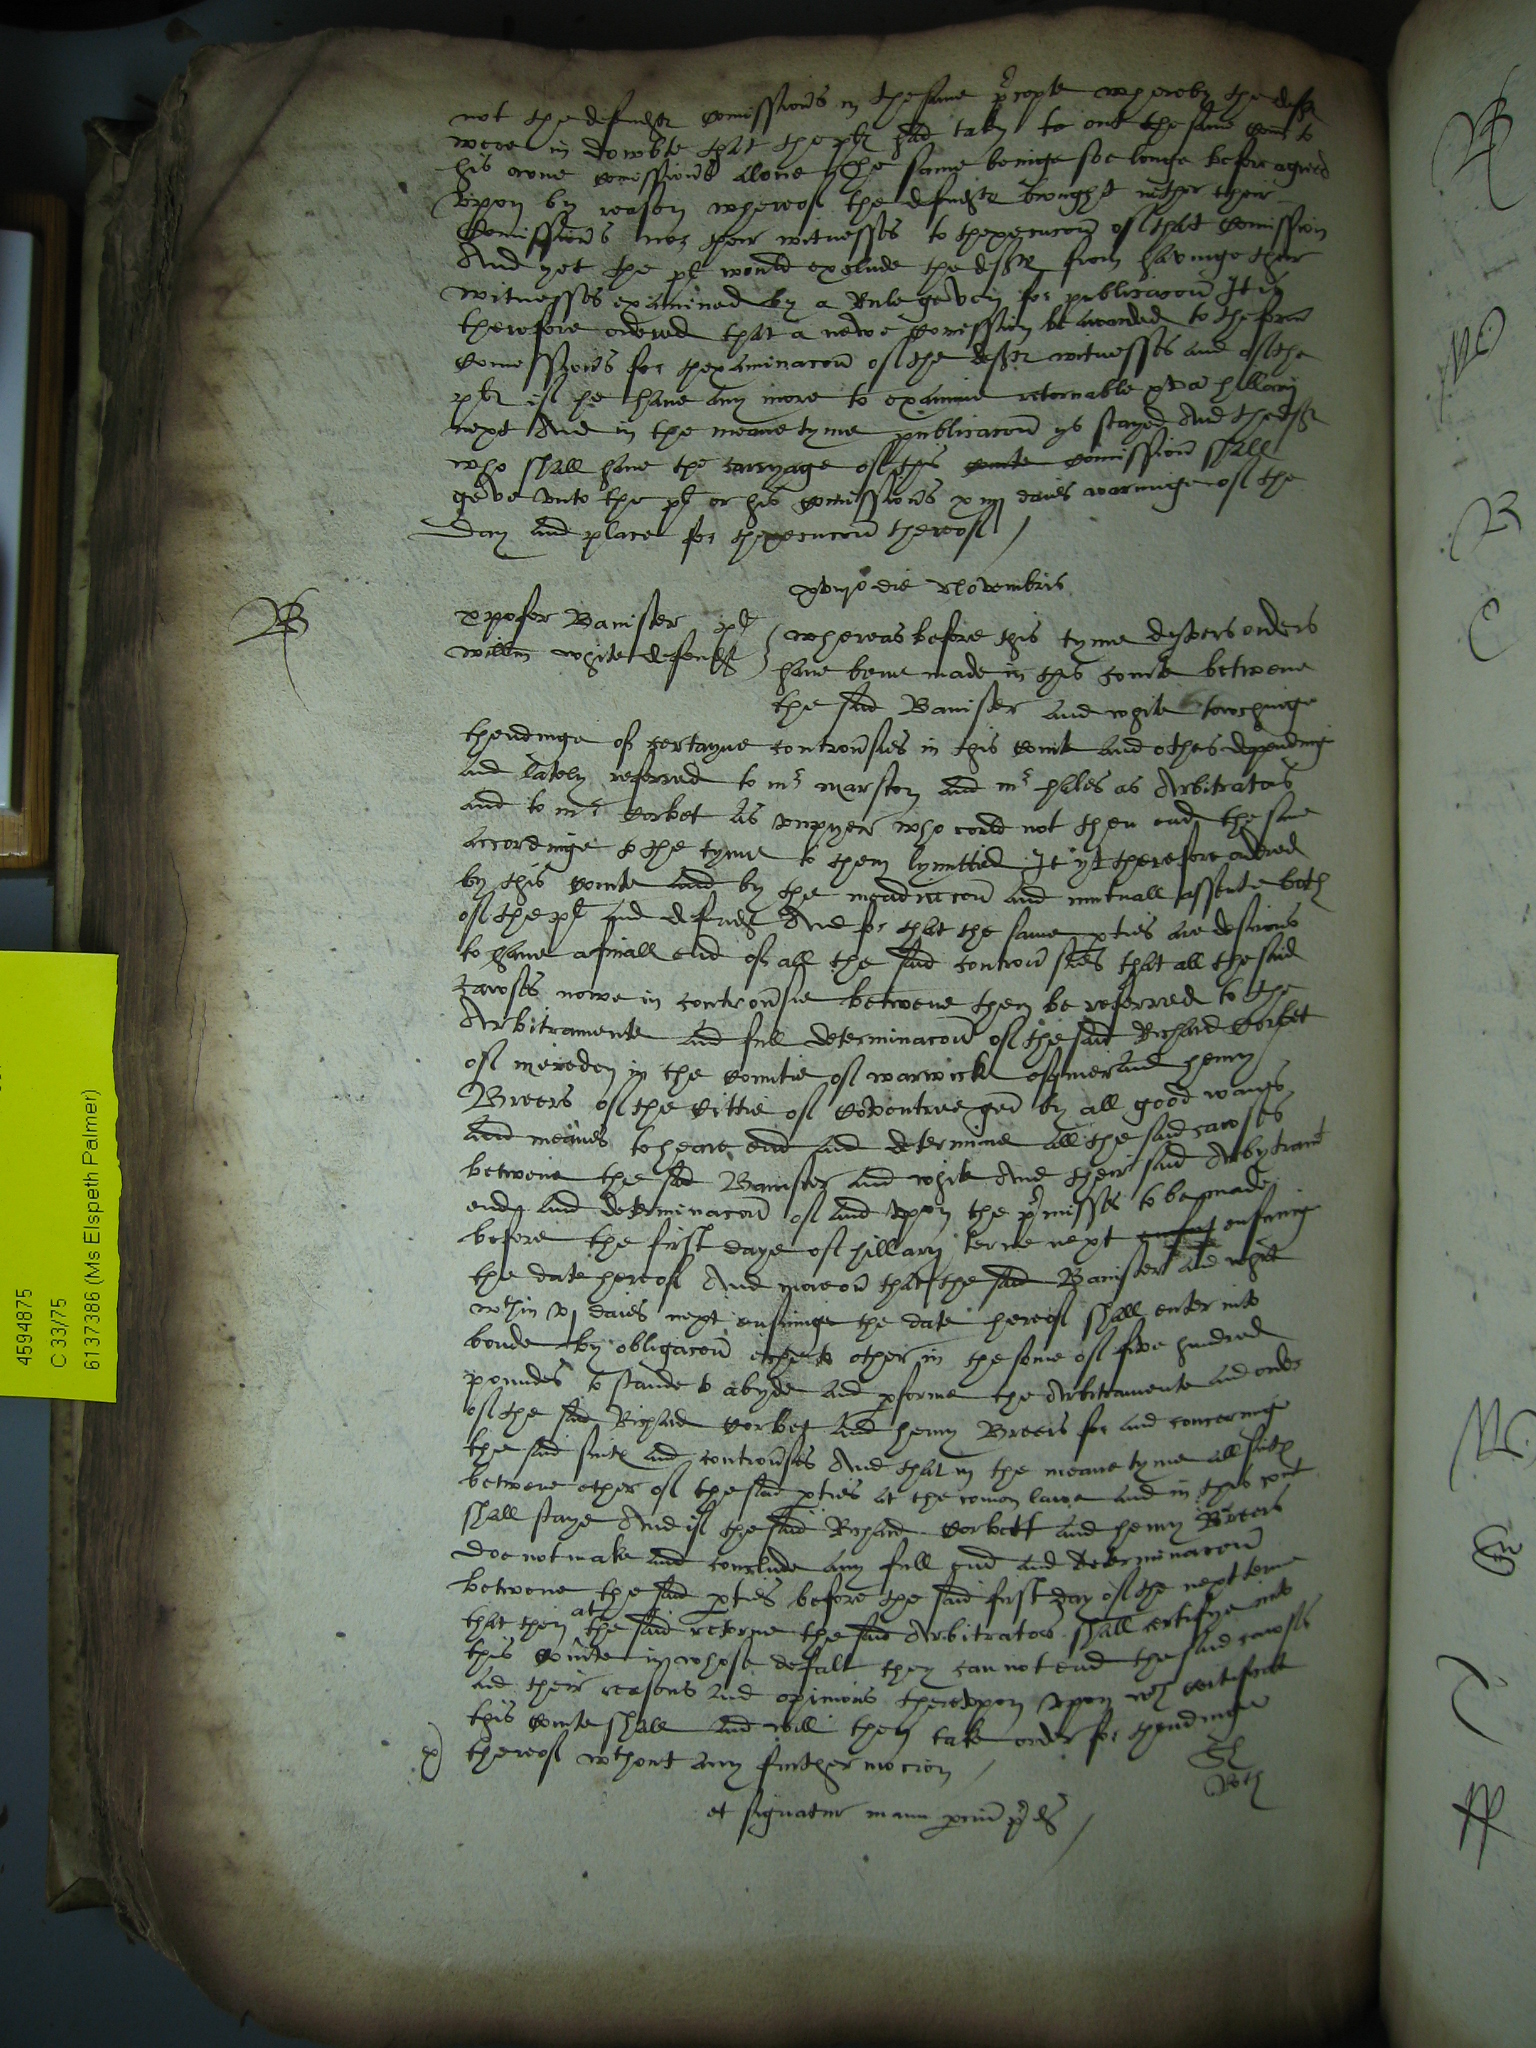 not the defendts Comissions in the same p̱cepte whereby the defts
were in dowbte that the pl had taken to out the same Com to
his owne Comissions alone the same beinge soe longe before agreed
Vpon by reason whereof the defendts brought nether their
Comissions nor their witnesses to thexecucon of that Comission
And yet the pl would exclude the defts from havinge their
witnesses examined by a Rule geven for publicacon It is
therefore ordered that a newe Comission be awarded to the form
Comissions for thexaminacon of the defts witnesses and of the
pltf if he have any more to examine retornable hillarij
next And in the meane tyme publicacon ys stayed And the deft
who shall have the carryage of this Comission shall
geve vnto the pl or his Comissions xiiij daies warninge of the
Day and place for thexecucon thereof /
xviijo die Novembris
xpofer Banister pl
willm white defendt
whereas before this tyme dyvers orders
have bene made in this Courte betwene
the said Banister and white towchinge
thendinge of certayne controusies in this Courte and others depending
and lately referred to mr marston and mr hales as Arbitrators
and to mr Corbet as vmpyer who could not then end the same
accordinge to the tyme to them lymitted It ys therefore ordered
by this Courte and by the meadiacon and mutuall assente both
of the pl and defendt And for that the same p̱ties are desirous
to have a finall end of all the said controusies that all the said
cawses nowe in controusie betwene them be referred to the
Arbitramente and full determinacon of the said Richard Corbet
of mereden in the Countie of warwick esquier and henry
Breers of the Cittie of Coventree gent by all good wayes
and meanes to heare end and determine all the said cawses
betwene the said Banister and white And their said Arbytramt
end and determinacon of and vpon the p̱misses to be made
before the first daye of hillary terme next ensuinge
the date hereof And moreou that the said Banister and white
wthin vj daies next ensuinge the date hereof shall enter into
bonde by obligacon eche to other in the some of five hundred
poundes to stande to abyde and p̱forme the Arbitramente and order
of the said Richard Corbet and henry Breers for and concerninge
the said suits and controusies And that in the meane tyme all suits
betwene ether of the said p̱ties at the comon lawe and in this Cort
shall staye And if the said Richard Corbett and henry Breers
doe not make and conclude any full end and determinacon
betwene the said p̱ties before the said first day of the next terme
that then at the said retorne the said Arbitrators shall certifye into
this Courte in whose defalt they can not end the said cawses
and their reasons and opinions therevpon vpon wch certificate
this Courte shall and will then take order for thendinge
thereof wthout any further mocion /
et signatur manu p̱ciu p̱d /
4594875
C 33/75
6137386 (Ms Elspeth Palmer)